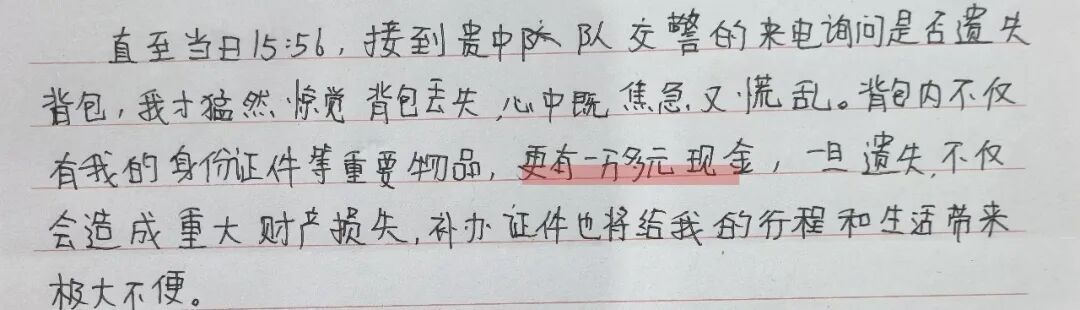 直至当日15:56，接到贵中队交警的来电询问是否遗失
背包，我才猛然惊觉背包丢失，心中既焦急又慌乱。背包内不仅
有我的身份证件等重要物品，更有一万多元现金，一旦遗失，不仅
会造成重大财产损失，补办证件也将给我的行程和生活带来
极大不便。